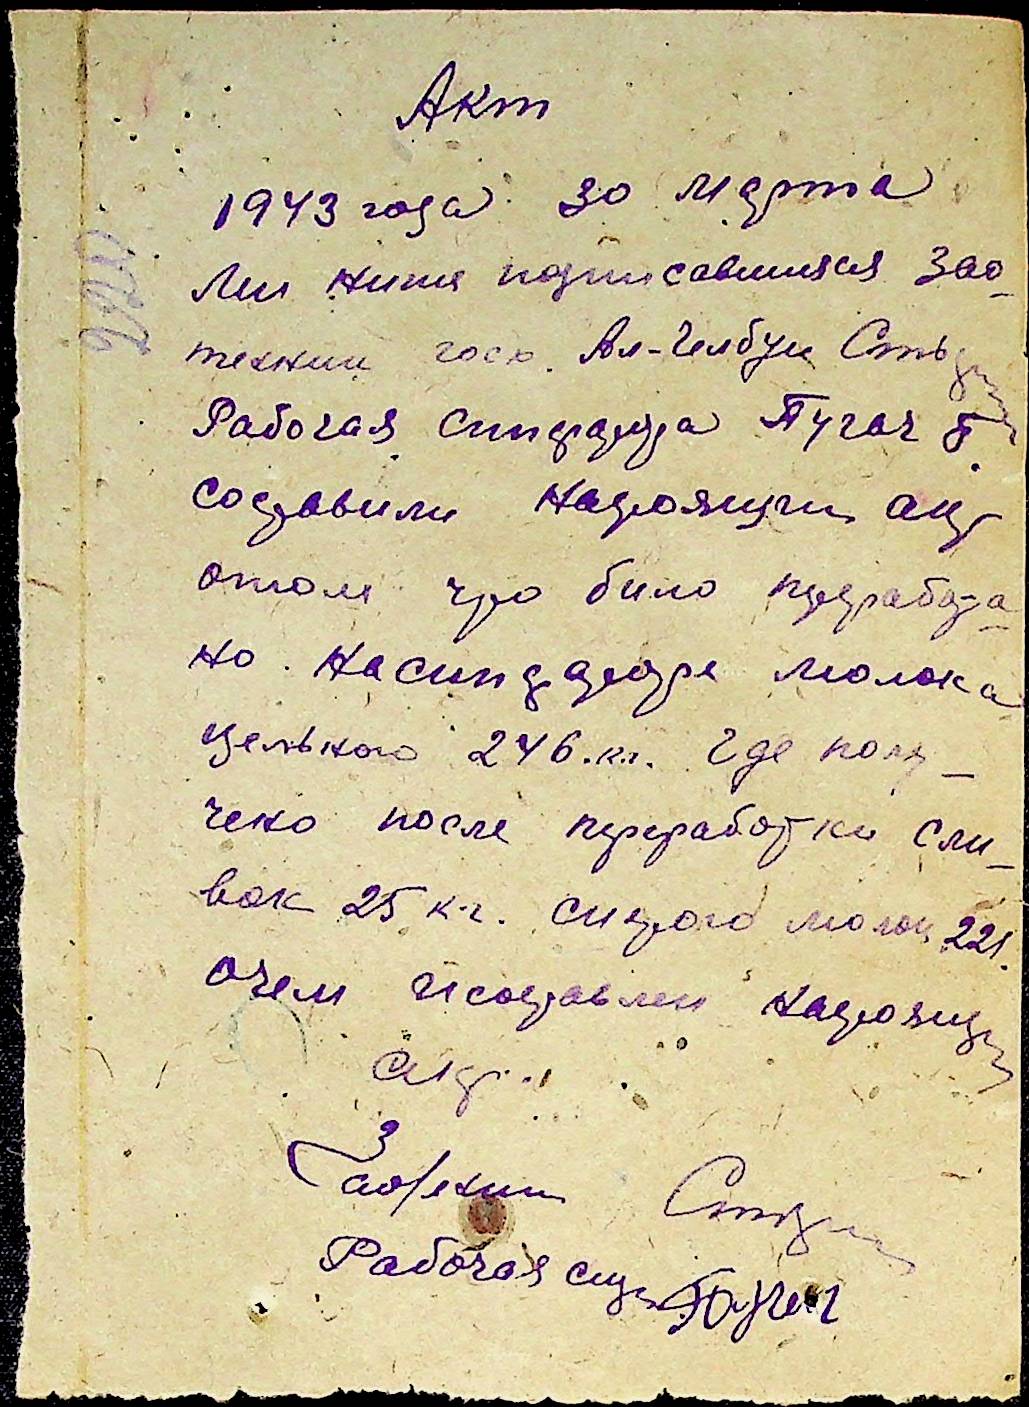 Акт
1943 года 30 Марта
Ми ниже подписавшияся Зао-
техник госх. Ал-Гелбуи
Рабочая Сипаратра Пугач
составили настоящий акт
отом что било перработа-
но. На сипараторе молока
цельного 246.кг. Где полу-
чено после переработки сли-
вок 25 кг. сирого молок 221.
очем и составлен настоящий
акт..
Заотехник
Рабочая сип Пугач
220